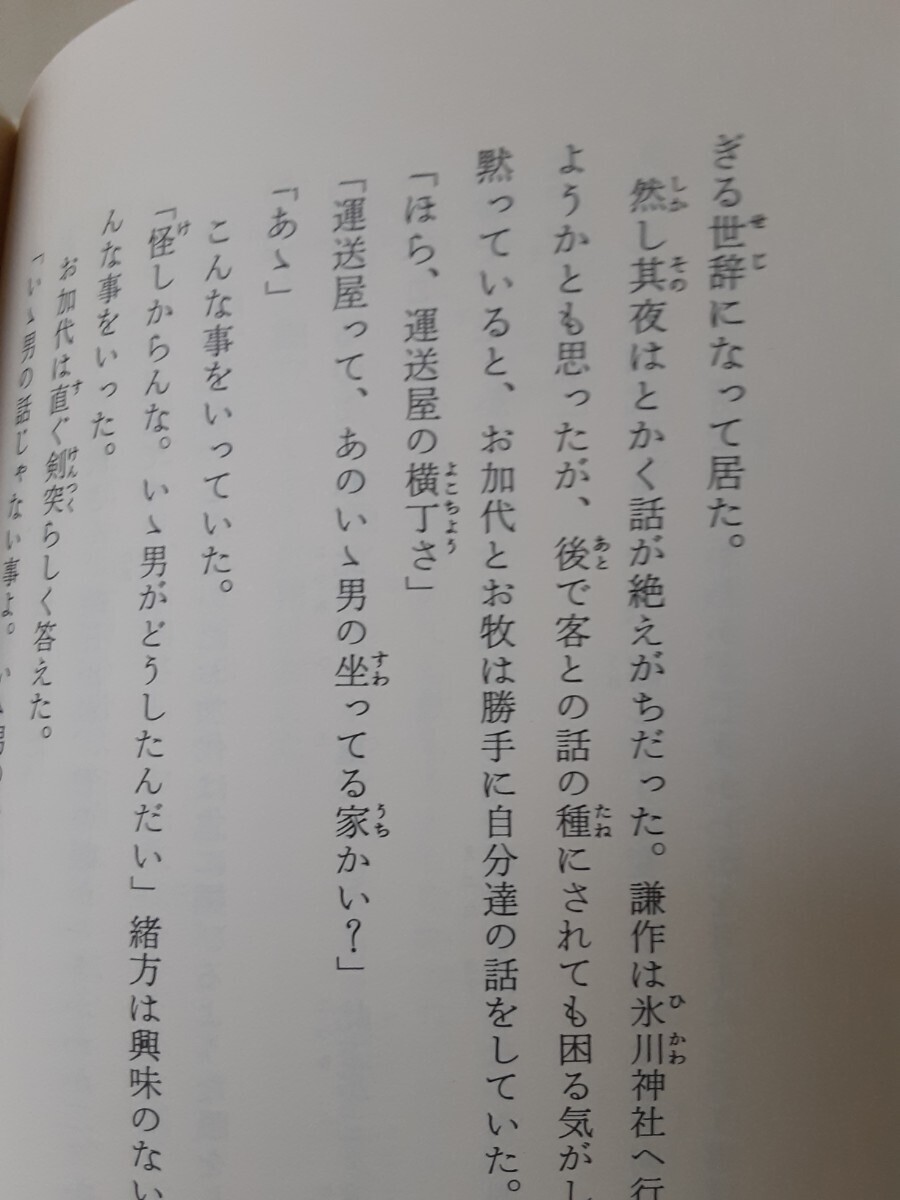 ぎる世辞になって居た。
然し其夜はとかく話が絶えがちだった。謙作は氷川神社へ行
ようかとも思ったが、後で客との話の種にされても困る気がし
黙っていると、お加代とお牧は勝手に自分達の話をしていた。
「ほら、運送屋の横丁さ」
「運送屋って、あのいゝ男の坐ってる家かい？」
「あゝ」
こんな事をいっていた。
「怪しからんな。いゝ男がどうしたんだい」緒方は興味のない
んな事をいった。
お加代は直ぐ剣突らしく答えた。
「いゝ男の話じゃない事よ。